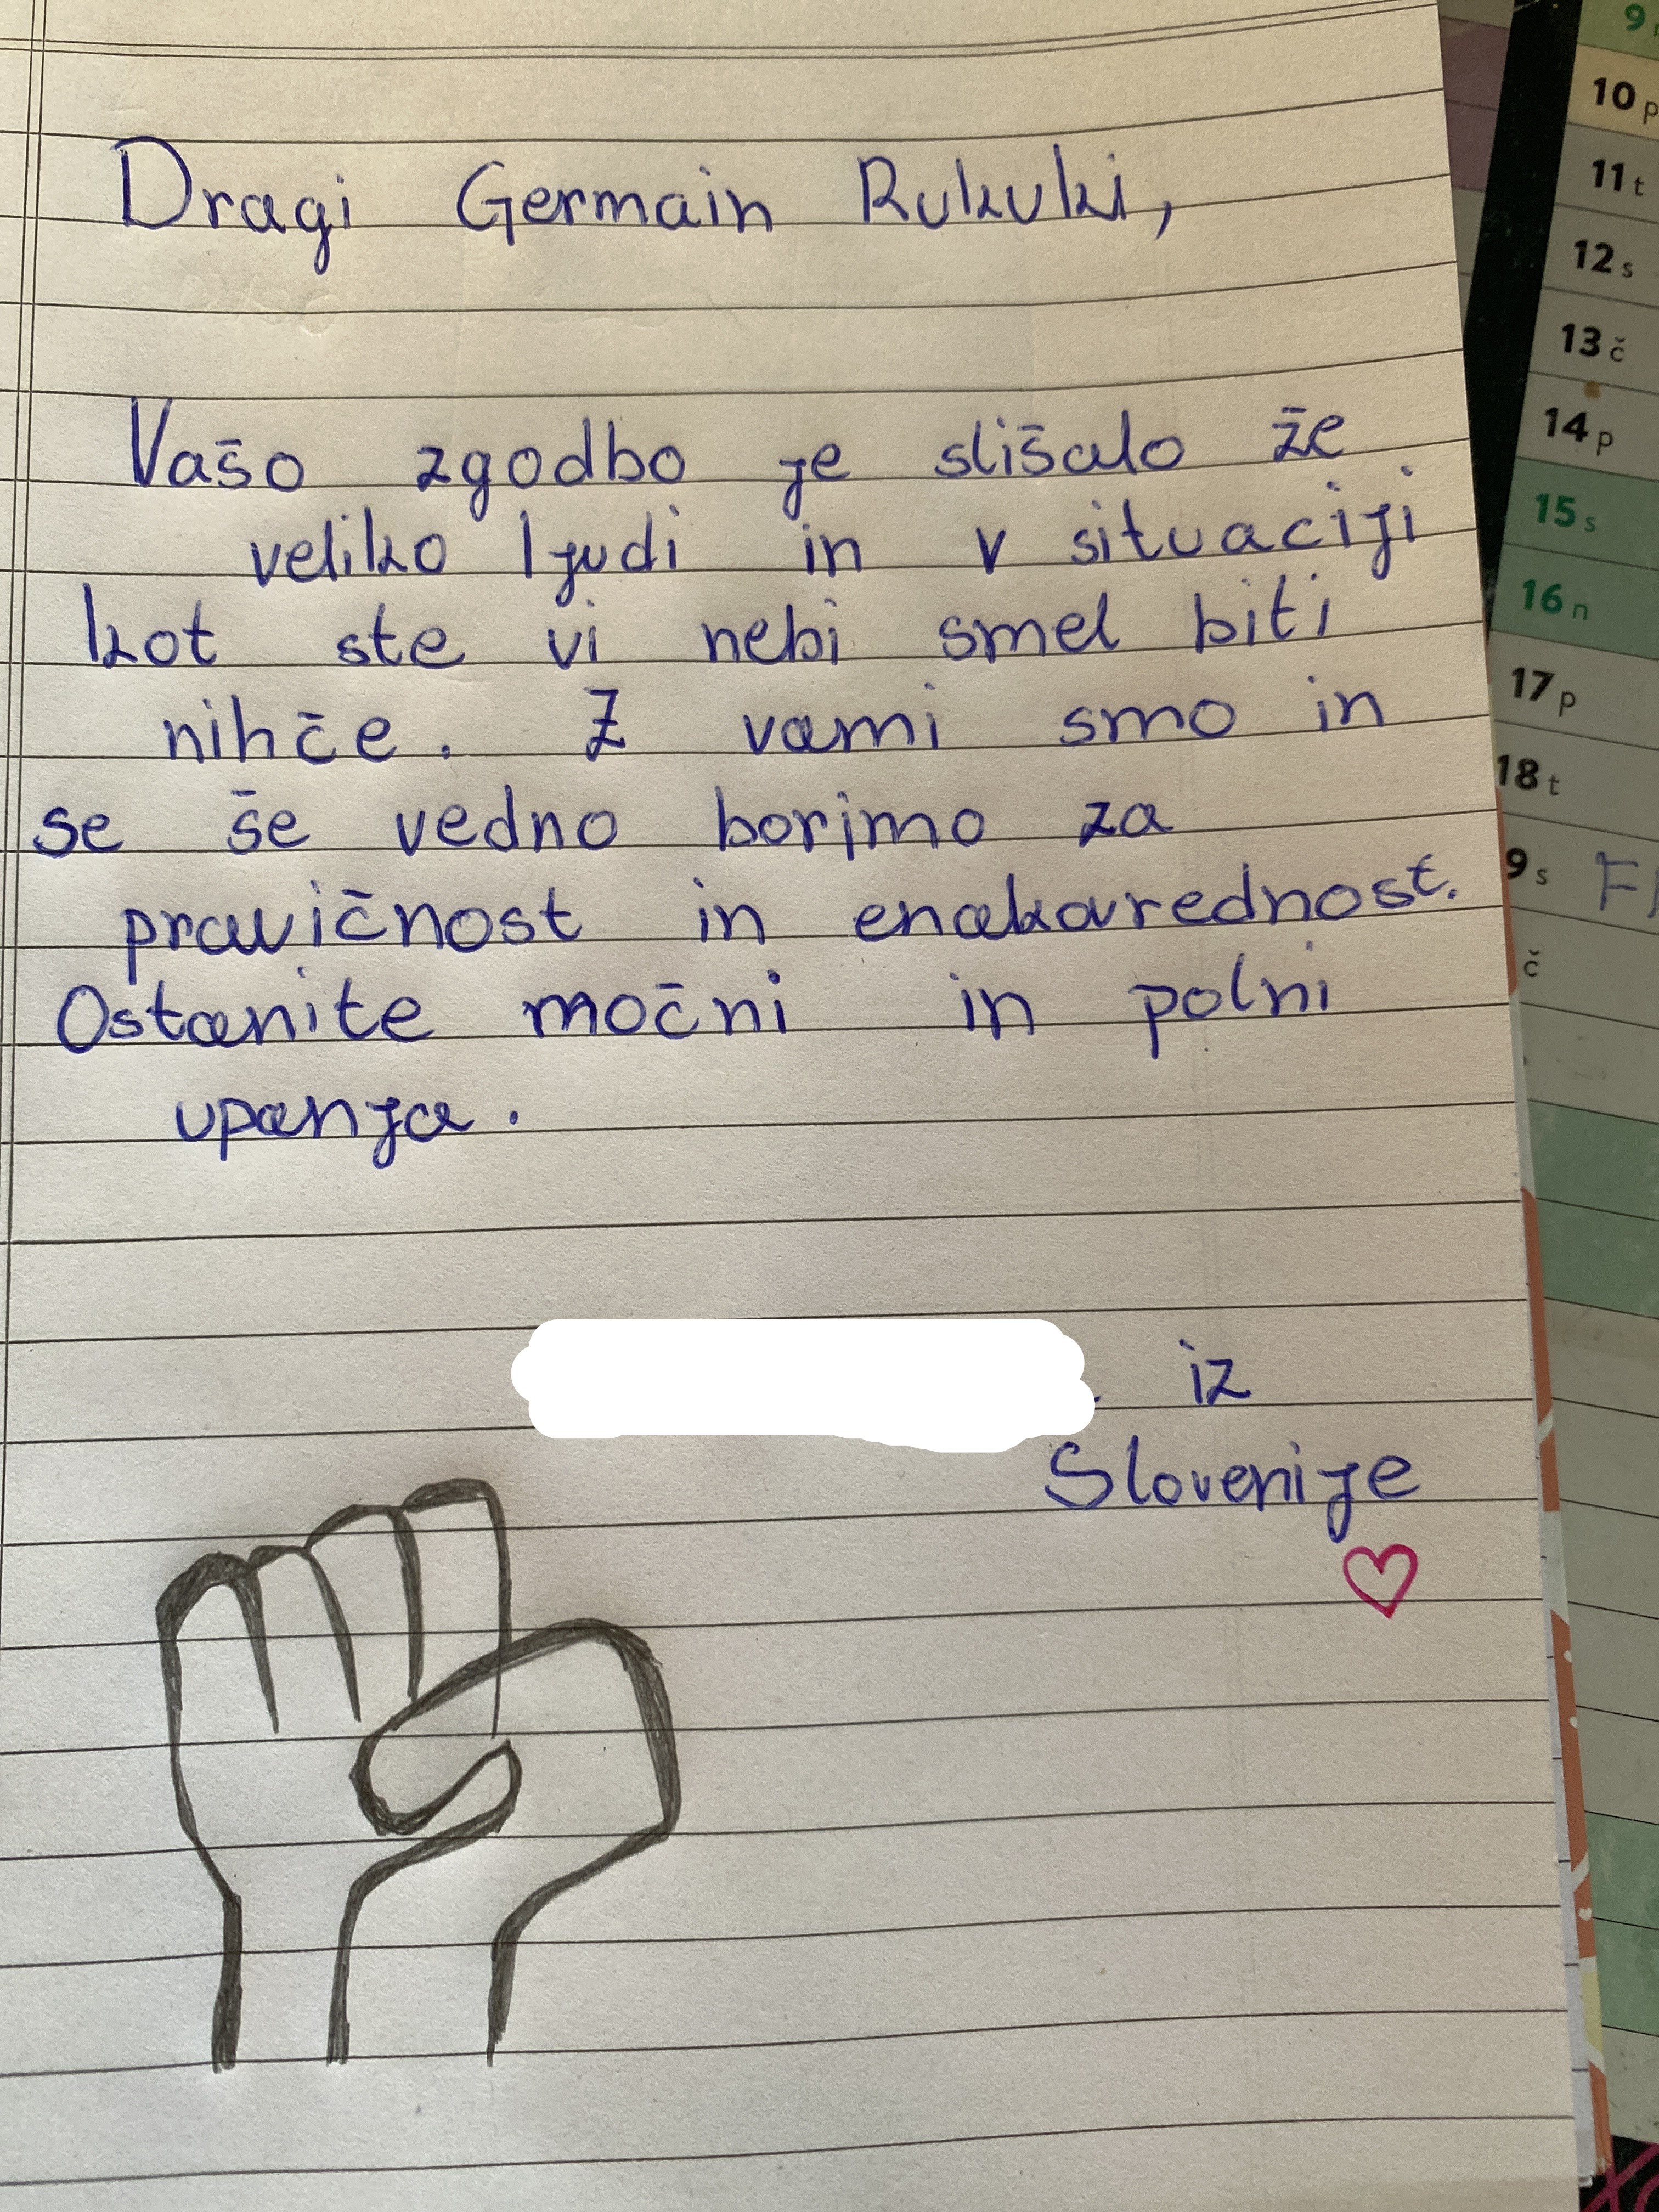 Dragi Germain Rukuki,
Vašo zgodbo je slišalo že
veliko ljudi in v situaciji
kot ste vi nebi smel biti
nihče. Z vami smo in
se še vedno borimo za
pravičnost in enakovrednost.
Ostanite močni in polni
upanja.
iz
Slovenije
9
10 p
11 t
12 s
13 č
14 p
15 s
16 n
17 p
18 t
9 s
č